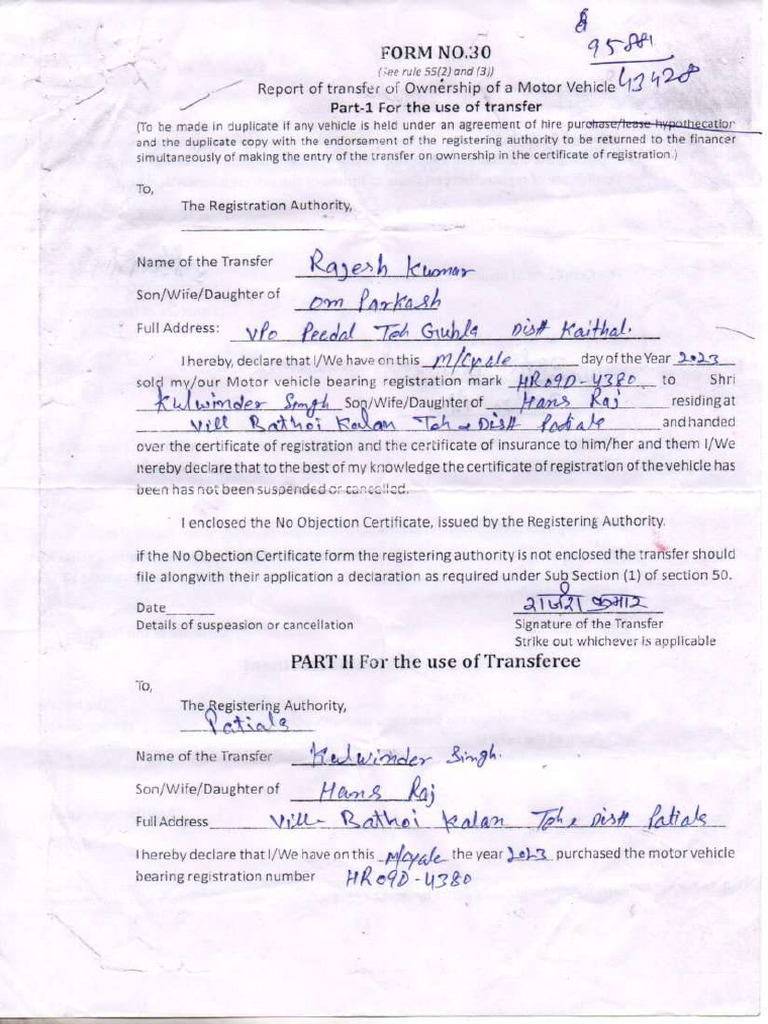 FORM NO.30
95881
43428
(See rule 55(2) and (3))
Report of transfer of Ownership of a Motor Vehicle
Part-1 For the use of transfer
(To be made in duplicate if any vehicle is held under an agreement of hire purchase/lease hypothecation
and the duplicate copy with the endorsement of the registering authority to be returned to the financer
simultaneously of making the entry of the transfer on ownership in the certificate of registration.)
To,
The Registration Authority,
Name of the Transfer Rajesh Kumar
Son/Wife/Daughter of Om Parkash
Full Address: VPO Peedal Teh Guhla Distt Kaithal.
I hereby, declare that I/We have on this M/Cycale day of the Year 2023
sold my/our Motor vehicle bearing registration mark HR09D-4380 to Shri
Kulwinder Singh Son/Wife/Daughter of Hans Raj residing at
Vill Bathoi Kalan Teh & Distt Patiala and handed
over the certificate of registration and the certificate of insurance to him/her and them I/We
hereby declare that to the best of my knowledge the certificate of registration of the vehicle has
been has not been suspended or cancelled.
I enclosed the No Objection Certificate, issued by the Registering Authority.
if the No Obection Certificate form the registering authority is not enclosed the transfer should
file alongwith their application a declaration as required under Sub Section (1) of section 50.
Date राजेश कुमार
Details of suspeasion or cancellation Signature of the Transfer
Strike out whichever is applicable
PART II For the use of Transferee
To,
The Registering Authority,
Patiala
Name of the Transfer Kulwinder Singh.
Son/Wife/Daughter of Hans Raj
Full Address Vill- Bathoi Kalan Teh & Distt Patiala
I hereby declare that I/We have on this M/Cycale the year 2023 purchased the motor vehicle
bearing registration number HR09D-4380